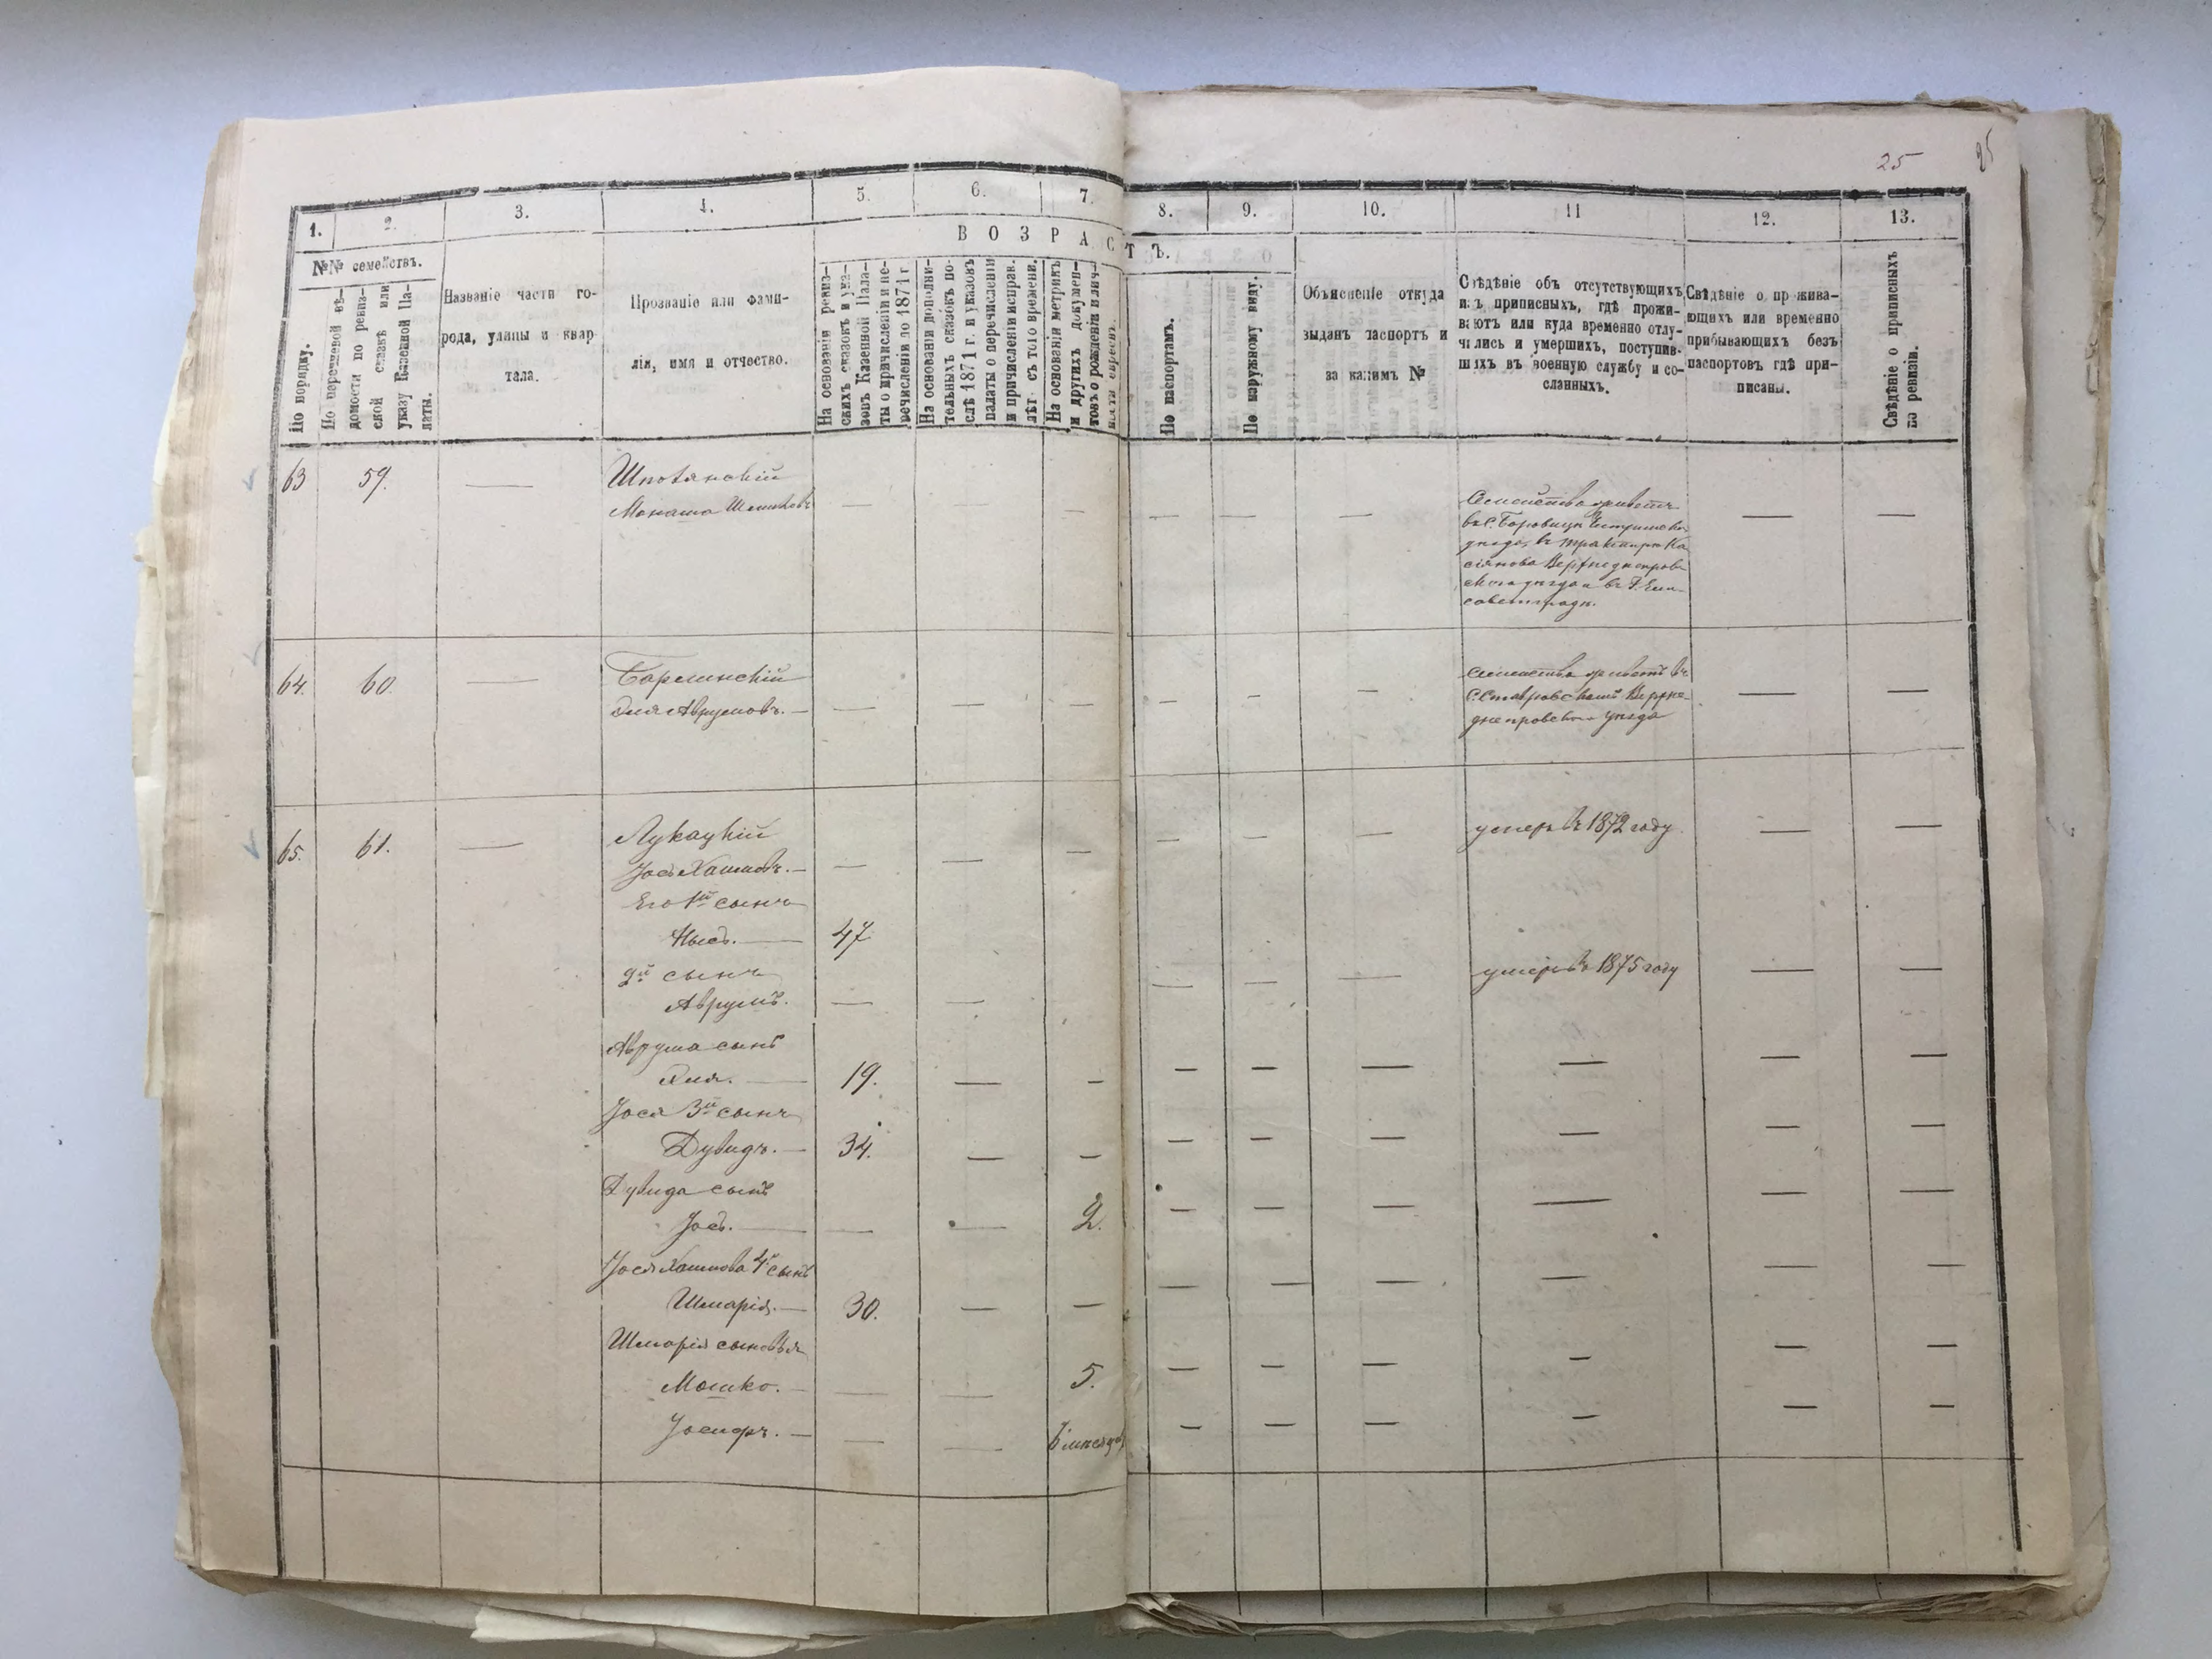 25
25
1.
2.
3.
4.
5.
6.
7.
8.
9.
10.
11
12.
13.
№№ семействъ.
По порядку.
По перечневой вѣ-
домости по ревиз-
ской сказкѣ или
указу Казенной Па-
латы.
Названіе части го-
рода, улицы и квар-
тала.
Прозваніе или фами-
лія, имя и отчество.
ВОЗРАСТЪ.
На основаніи ревиз-
скихъ сказокъ и ука-
зовъ Казенной Пала-
ты о причисленіи и пе-
речисленіи до 1871 г.
На основаніи дополни-
тельныхъ сказокъ по-
слѣ 1871 г. и указовъ
палаты о перечисленіи
и причисленіи исправ.
лѣт. съ того времени.
На основаніи метрикъ
и другихъ докумен-
товъ о рожденіи и вич-
По паспортамъ.
По наружному виду.
Объясненіе откуда
выданъ паспортъ и
за какимъ №
Свѣдѣніе объ отсутствующихъ
изъ приписныхъ, гдѣ прожи-
ваютъ или куда временно отлу-
чились и умершихъ, поступив-
шихъ въ военную службу и со-
сланныхъ.
Свѣдѣніе о прожива-
ющихъ или временно
прибывающихъ безъ
паспортовъ гдѣ при-
писаны.
Свѣдѣніе о приписныхъ
по ревизіи.
63 59. —
Шполянскій
Монашо — — — — — — — —
Семейство живетъ
въ С. Боровицѣ
уѣзда, въ трактирѣ Ка
сіянова Верхнеднепров
скаго уѣзда и въ Г. Ели-
саветградѣ.
64. 60. —
Барлинскій
Эля Аврумовъ. — — — — — — — — —
Семейство живетъ въ
С. Верхне-
днепровскаго уѣзда
65. 61. —
Лукацкій
Іось Хаимовъ. — — — — — — — умеръ въ 1872 году — —
Его 1й сынъ
47
2й сынъ
Аврумъ. — — — — — умеръ въ 1875 году — —
Аврума сынъ
Эля. — 19. — — — — — — — —
Іося 3й сынъ
Дувидъ. — 34. — — — — — — — —
Дувида сынъ
Іось. — — — 2. — — — — — —
Іося Хаимова 4й сынъ
Шмарія. — 30. — — — — — — — —
Шмарія сыновья
Мошко. — — — 5. — — — — — —
Іосифъ. — — — 6 мѣсяцов — — — — — —